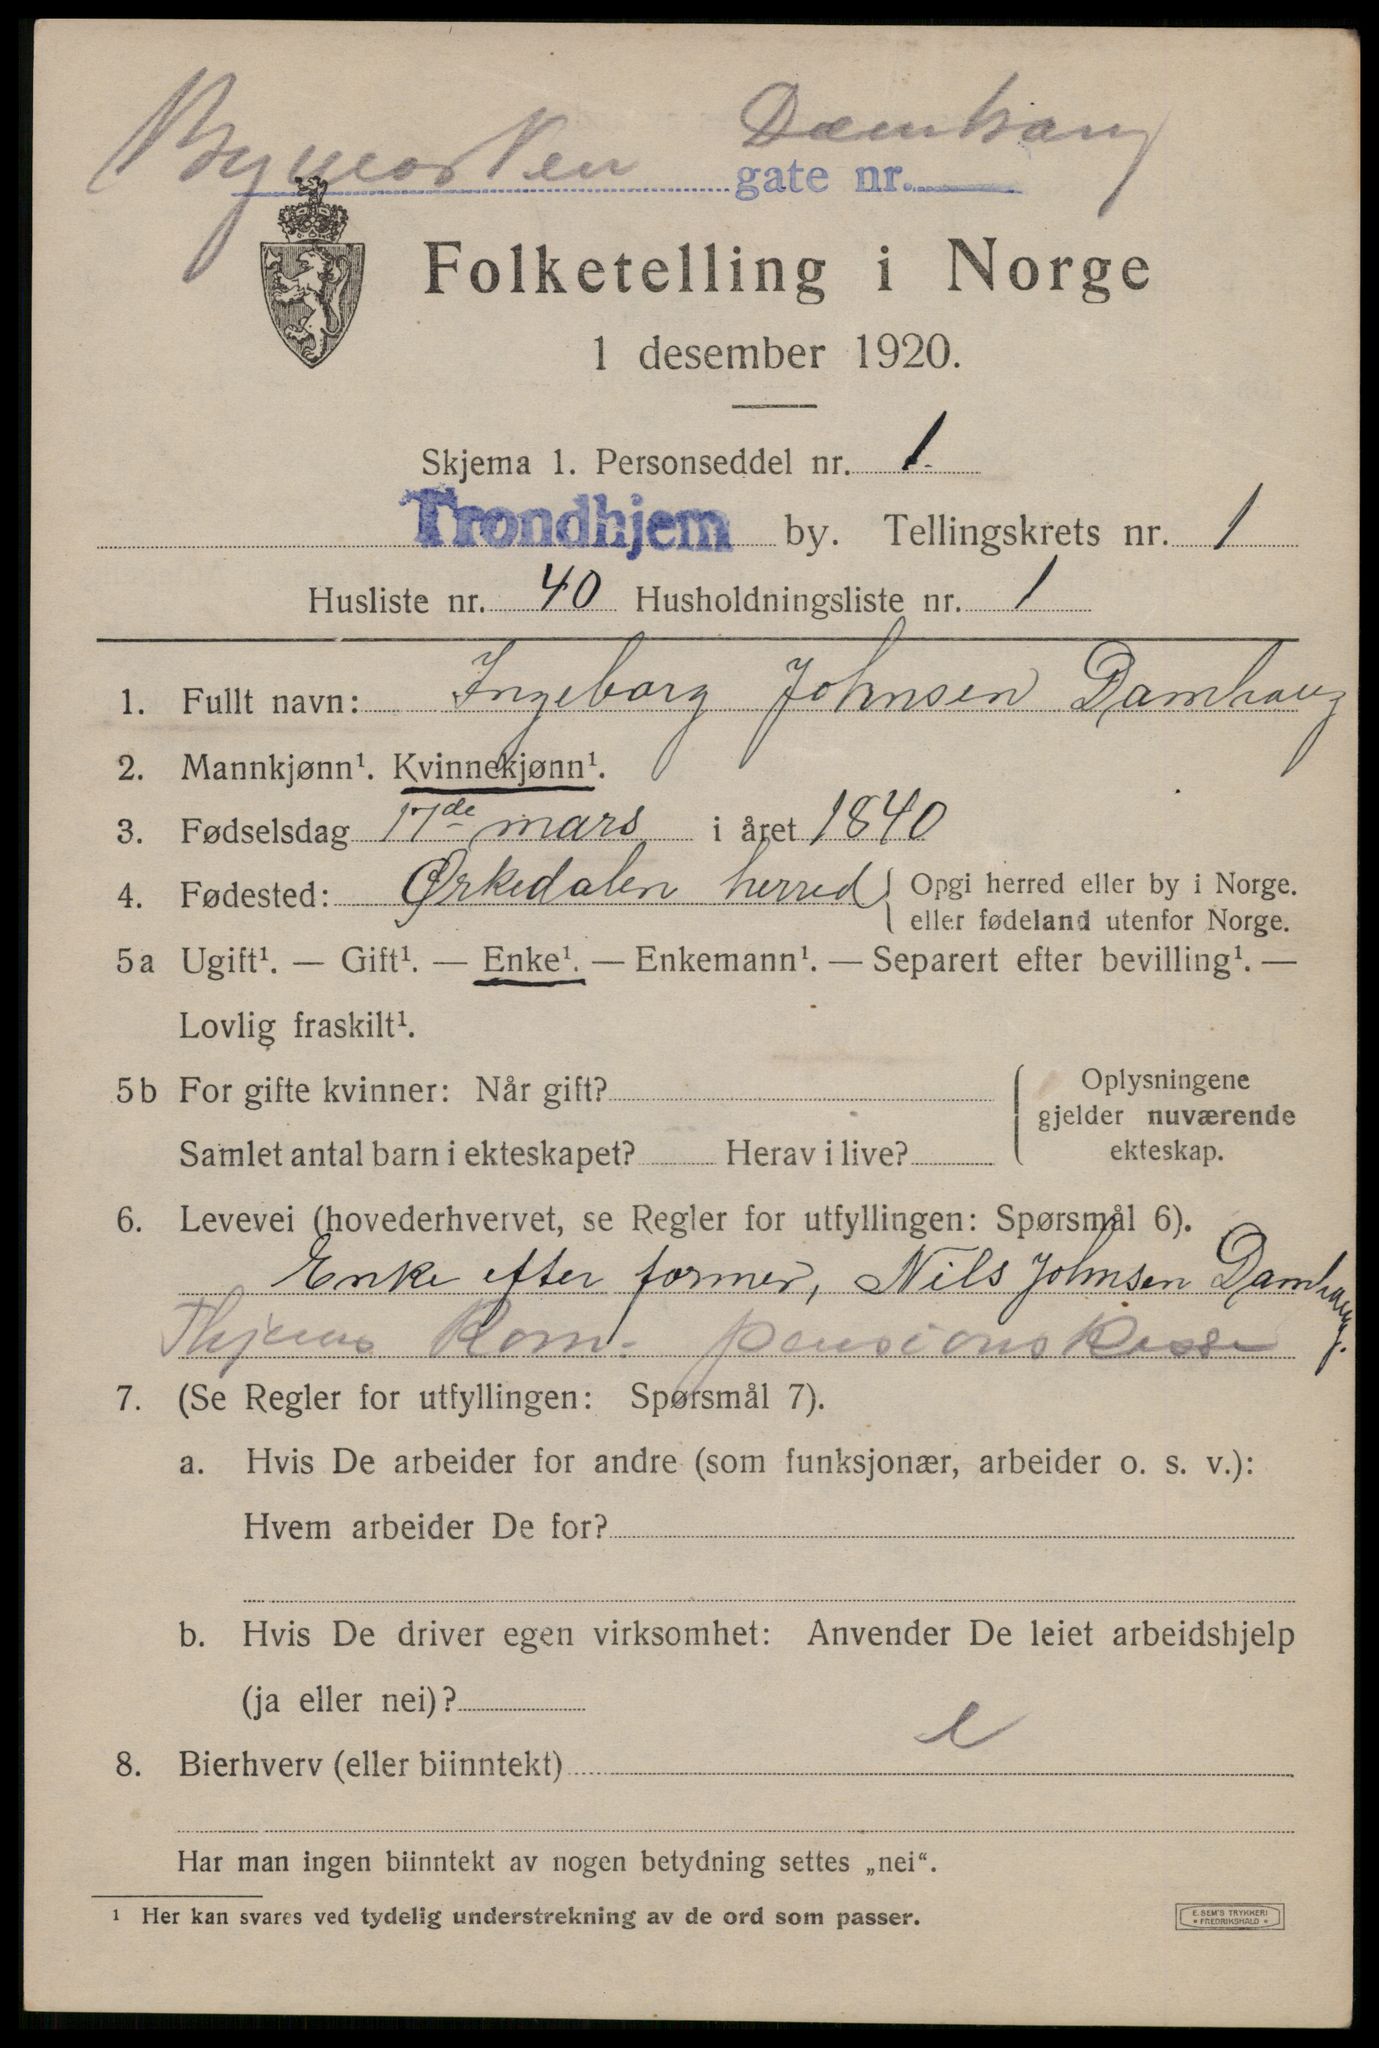 Bymarken Damhaug
gate nr.
Folketelling i Norge
1 desember 1920.
Skjema 1. Personseddel nr. 1.
Trondhjem by. Tellingskrets nr. 1
Husliste nr. 40 Husholdningsliste nr. 1
1. Fullt navn: Ingeborg Johnsen Damhaug
2. Mannkjønn¹. Kvinnekjønn¹.
3. Fødselsdag 17de mars i året 1840
4. Fødested: Ørkedalen herred { Opgi herred eller by i Norge.
eller fødeland utenfor Norge.
5a Ugift¹. — Gift¹. — Enke¹. — Enkemann¹. — Separert efter bevilling¹. —
Lovlig fraskilt¹.
5b For gifte kvinner: Når gift?
Samlet antal barn i ekteskapet? Herav i live?
Oplysningene
gjelder nuværende
ekteskap.
6. Levevei (hovederhvervet, se Regler for utfyllingen: Spørsmål 6).
Enke efter former, Nils Johnsen Damhaug.
Thjems Kom. pensionskasse
7. (Se Regler for utfyllingen: Spørsmål 7).
a. Hvis De arbeider for andre (som funksjonær, arbeider o. s. v.):
Hvem arbeider De for?
b. Hvis De driver egen virksomhet: Anvender De leiet arbeidshjelp
(ja eller nei)?
8. Bierhverv (eller biinntekt)
Har man ingen biinntekt av nogen betydning settes „nei“.
¹ Her kan svares ved tydelig understrekning av de ord som passer.
E. SEM'S TRYKKERI
FREDRIKSHALD